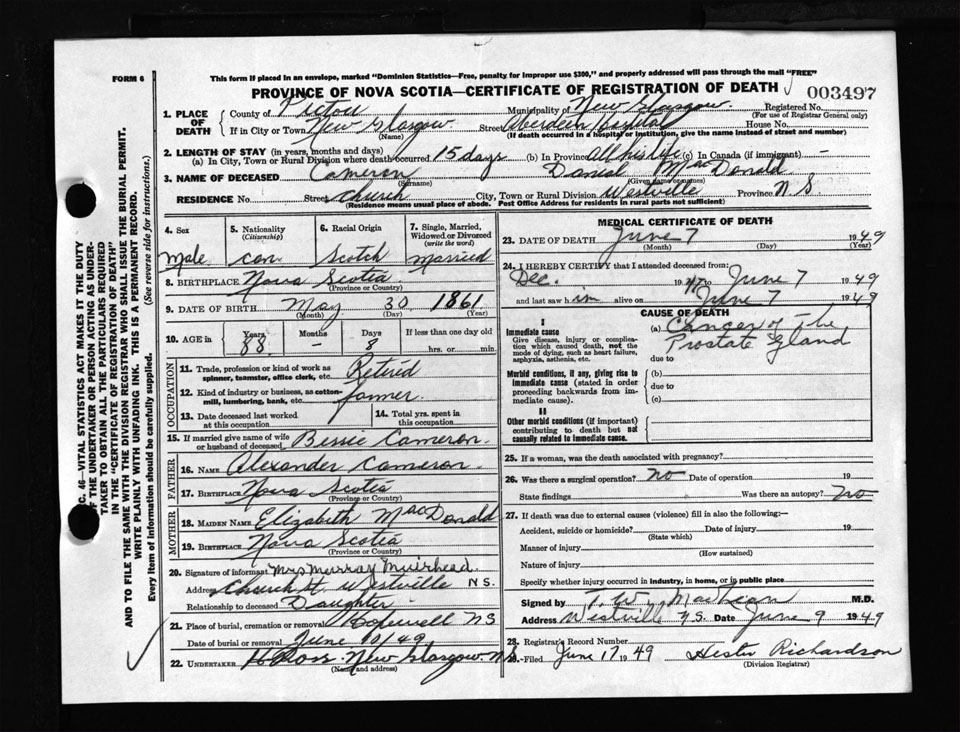 FORM 6
This form if placed in an envelope, marked "Dominion Statistics—Free, penalty for improper use $300," and properly addressed will pass through the mail "FREE"
PROVINCE OF NOVA SCOTIA—CERTIFICATE OF REGISTRATION OF DEATH
003497
1. PLACE OF DEATH
County of Pictou Municipality of New Glasgow. Registered No.
(For use of Registrar General only)
If in City or Town New Glasgow. Street Aberdeen Hospital House No.
(If death occurred in a hospital or institution, give the name instead of street and number)
2. LENGTH OF STAY (in years, months and days)
(a) In City, Town or Rural Division where death occurred 15 days (b) In Province All his life (c) In Canada (if immigrant) —
3. NAME OF DECEASED Cameron Daniel MacDonald.
(Surname) (Given name or names)
RESIDENCE No. Street Church City, Town or Rural Division Westville Province N S
(Residence means usual place of abode. Post Office Address for residents in rural parts not sufficient)
4. Sex
Male
5. Nationality
(Citizenship)
Can
6. Racial Origin
Scotch
7. Single, Married, Widowed or Divorced
(write the word)
Married
8. BIRTHPLACE Nova Scotia
(Province or Country)
9. DATE OF BIRTH May 30 1861
(Month) (Day) (Year)
10. AGE in Years Months Days If less than one day old
88 — 8 hrs. or min.
OCCUPATION
11. Trade, profession or kind of work as spinner, teamster, office clerk, etc. Retired
12. Kind of industry or business, as cotton-mill, lumbering, bank, etc. farmer.
13. Date deceased last worked at this occupation
14. Total yrs. spent in this occupation
15. If married give name of wife or husband of deceased Bessie Cameron.
FATHER
16. NAME Alexander Cameron.
17. BIRTHPLACE Nova Scotia
(Province or Country)
MOTHER
18. MAIDEN NAME Elizabeth MacDonald
19. BIRTHPLACE Nova Scotia
(Province or Country)
20. Signature of informant Mrs Murray Muirhead.
Address Church St. Westville N S.
Relationship to deceased Daughter
21. Place of burial, cremation or removal Hopewell N S
Date of burial or removal June 10/49
22. UNDERTAKER H Ross. New Glasgow. N S
(Name and address)
MEDICAL CERTIFICATE OF DEATH
23. DATE OF DEATH June 7 1949
(Month) (Day) (Year)
24. I HEREBY CERTIFY that I attended deceased from:
Dec. 1947 to June 7 1949
and last saw him alive on June 7 1949
CAUSE OF DEATH
I
Immediate cause
Give disease, injury or complication which caused death, not the mode of dying, such as heart failure, asphyxia, asthenia, etc.
(a) Cancer of The
Prostate Gland
due to
Morbid conditions, if any, giving rise to immediate cause (stated in order proceeding backwards from immediate cause).
(b)
due to
(c)
II
Other morbid conditions (if important) contributing to death but not causally related to immediate cause.
25. If a woman, was the death associated with pregnancy?
26. Was there a surgical operation? No Date of operation 19
State findings Was there an autopsy? No
27. If death was due to external causes (violence) fill in also the following:—
Accident, suicide or homicide? Date of injury 19
(State which)
Manner of injury
(How sustained)
Nature of injury
Specify whether injury occurred in industry, in home, or in public place
Signed by T. W. M.D.
Address Westville N.S. Date June 9 1949
28. Registrar's Record Number
29. Filed June 17 1949 Hester Richardson
(Division Registrar)
SEC. 46—VITAL STATISTICS ACT MAKES IT THE DUTY
OF THE UNDERTAKER OR PERSON ACTING AS UNDER-
TAKER TO OBTAIN ALL THE PARTICULARS REQUIRED
IN THE "CERTIFICATE OF REGISTRATION OF DEATH"
AND TO FILE THE SAME WITH THE DIVISION REGISTRAR WHO SHALL ISSUE THE BURIAL PERMIT.
WRITE PLAINLY WITH UNFADING INK. THIS IS A PERMANENT RECORD.
Every item of information should be carefully supplied. (See reverse side for instructions.)